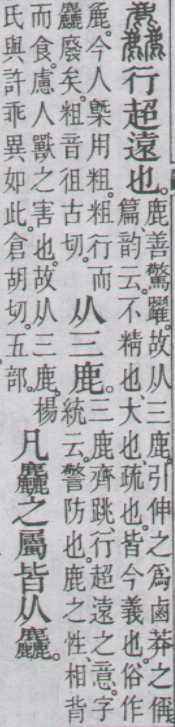 麤行超遠也。鹿善驚躍。故从三鹿。引伸之爲鹵莽之偁。篇韵云。不精也、大也、疏也。皆今義也。俗作
麁。今人槩用粗。粗行而麤廢矣。粗音徂古切。从三鹿。三鹿齊跳、行超遠之意。字統云。警防也。鹿之性、相背
而食。慮人獸之害也。故从三鹿。楊氏與許乖異如此。倉胡切。五部。凡麤之屬皆从麤。